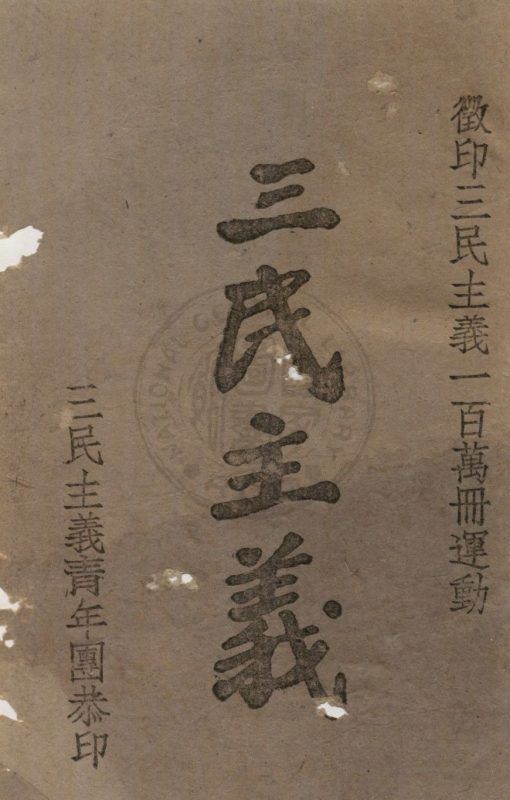 徵印三民主義一百萬冊運動
三民主義
三民主義靑年團恭印
NATIONAL CENTRAL LIBRARY